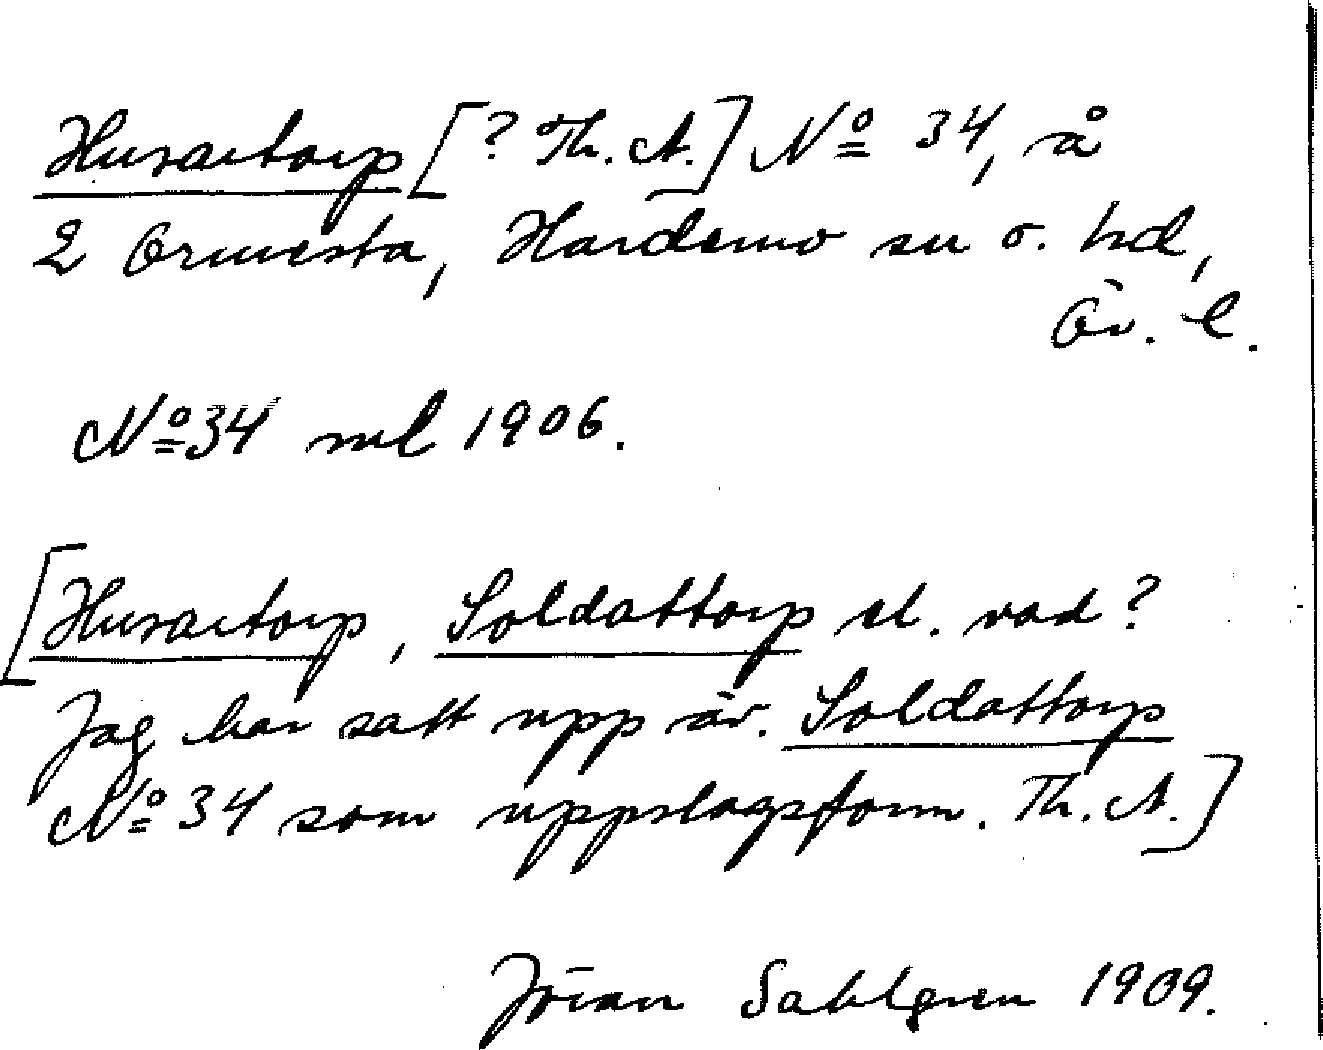 Husartorp [? Th. A.] No 34, å
2 Ormesta, Hardemo sn o. hd,
Ör. l.
No 34 ml 1906.
[Husartorp, Soldattorp el. vad?
Jag har satt upp äv. Soldattorp
No 34 som uppslagsform. Th. A.]
Jöran Sahlgren 1909.